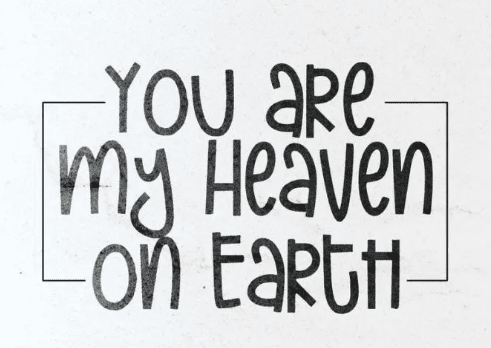 You are
my Heaven
on Earth